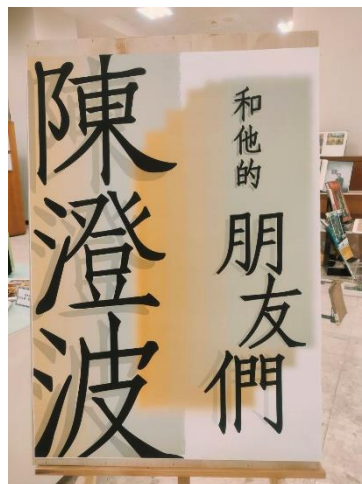 陳澄波
和他的
朋友們